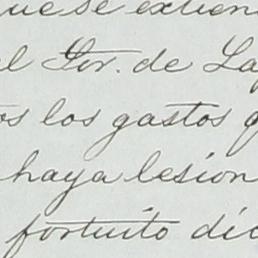 ue se extien
el Gor. de La
os los gastos q
haya lesion
fortuito dic